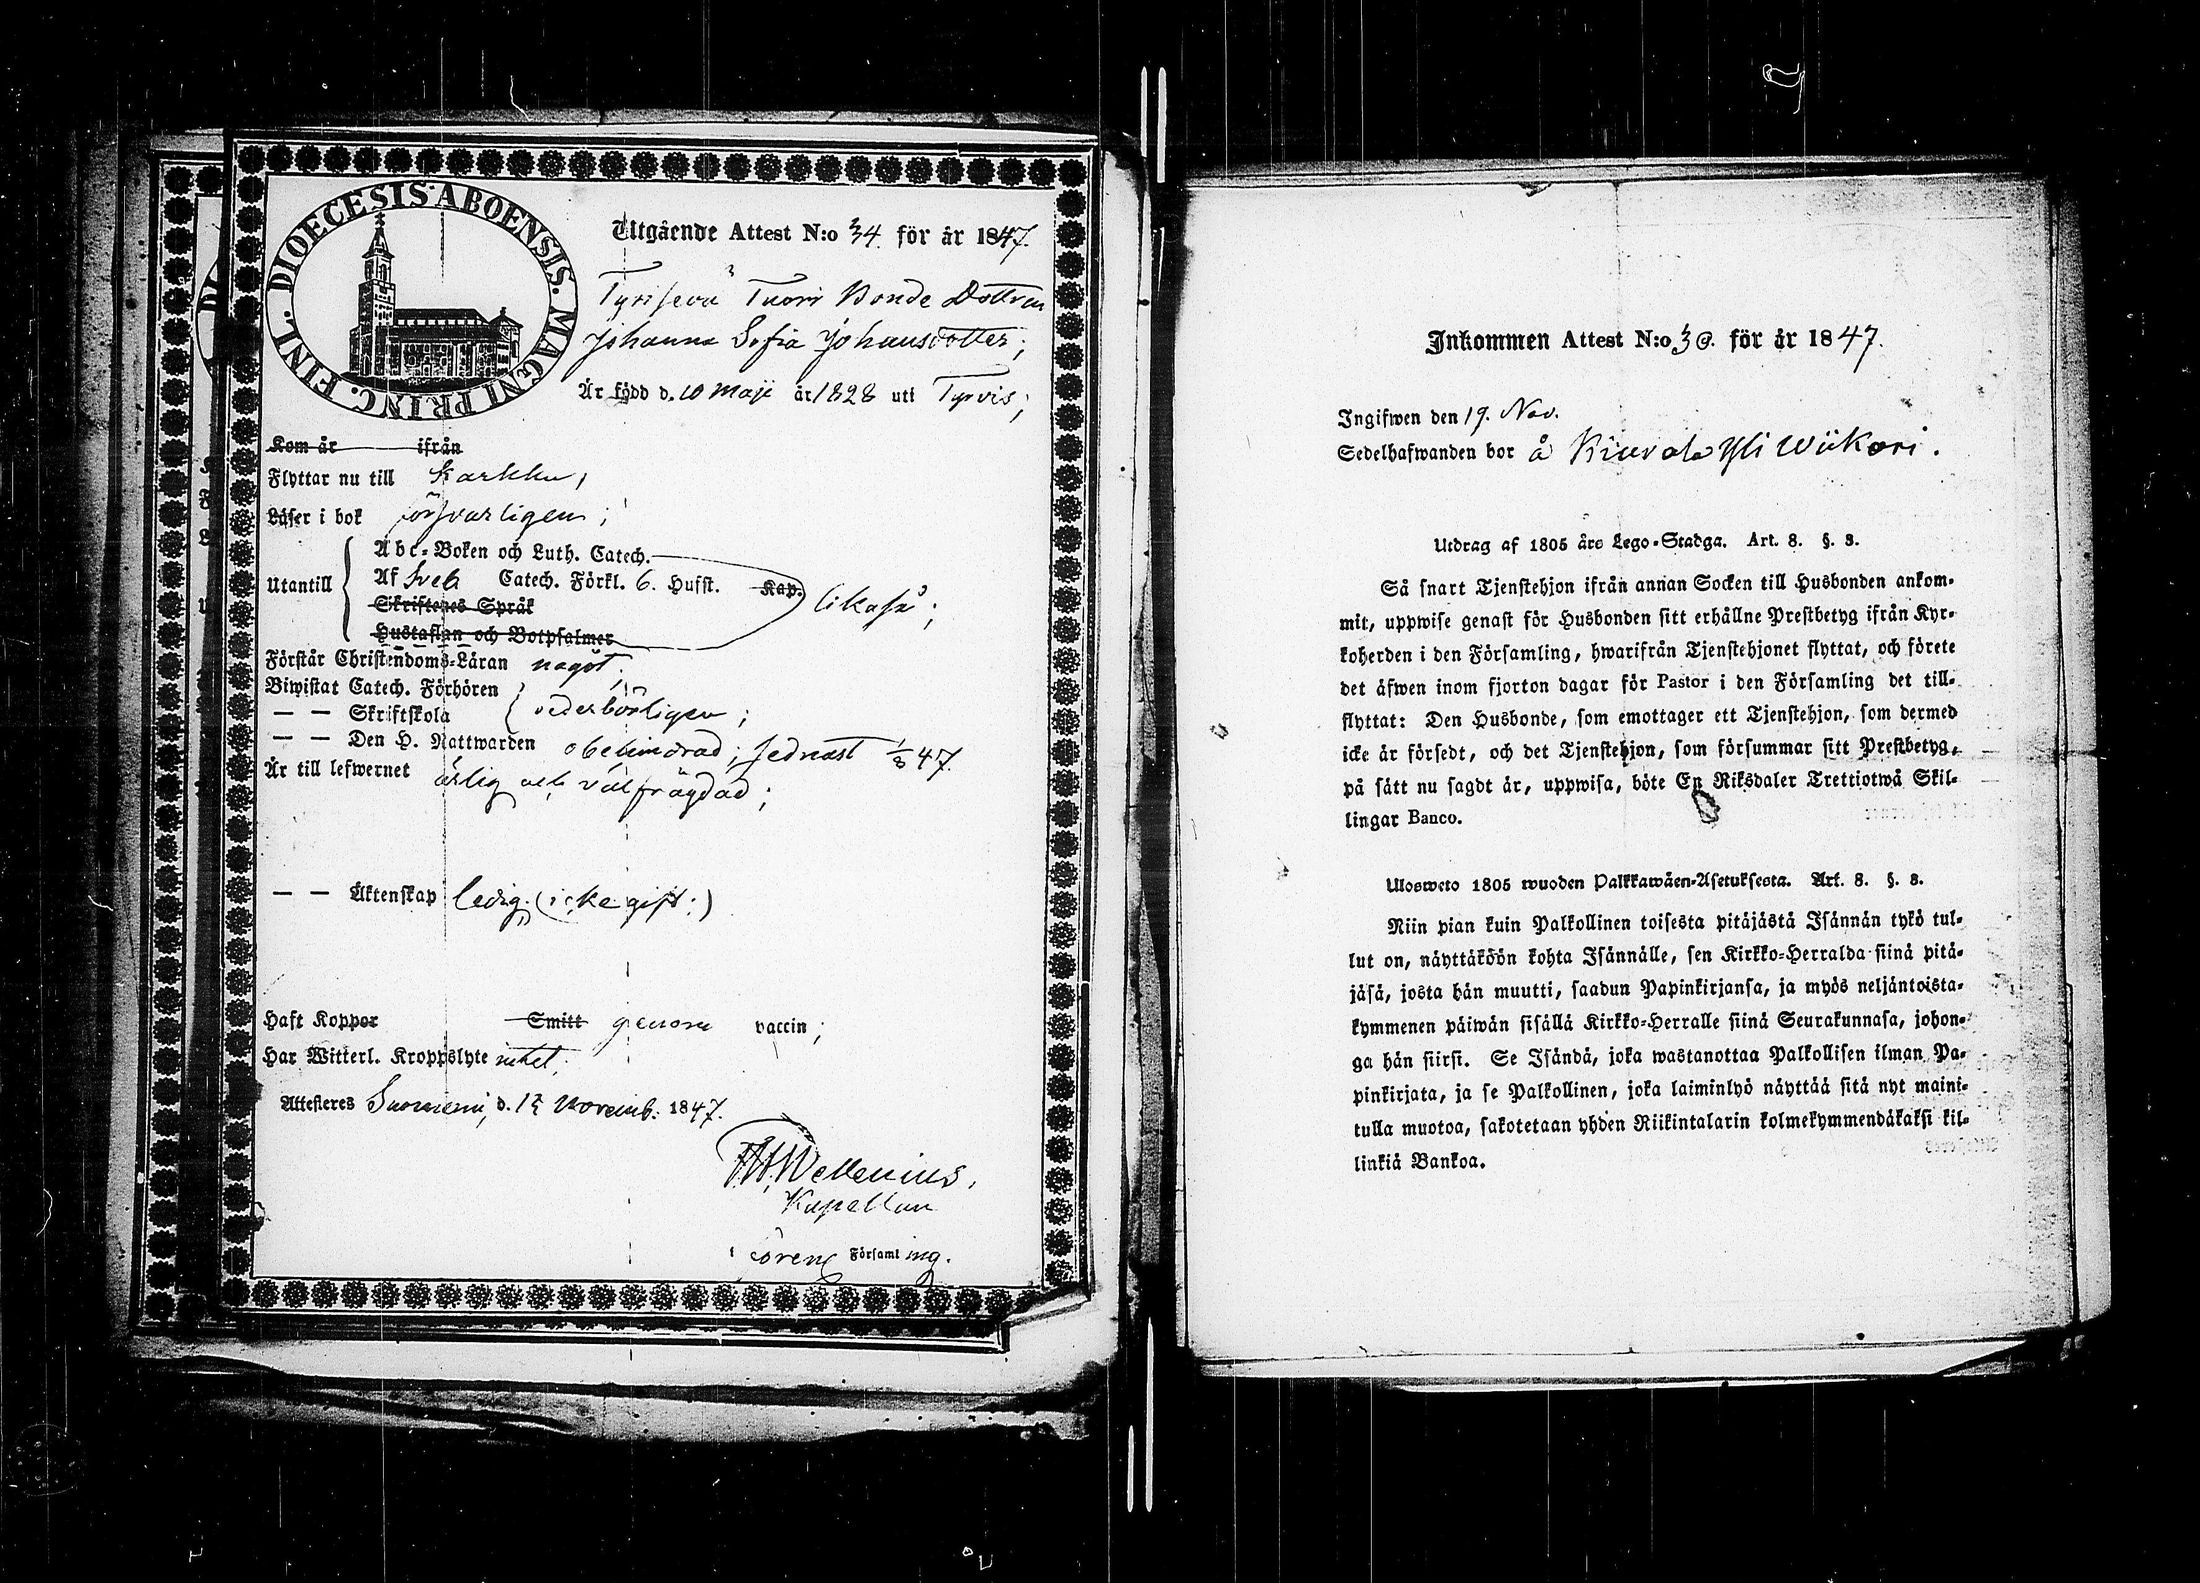 DIOECESIS ABOENSIS. MAGNI PRINC. FINL.
Utgående Attest N:o 34. för år 1847.
Tuori Bonde Dottren
Johanna Sofia Johansdotter;
Är född d. 10 Maji år 1828 uti Tyrvis;
Kom år ifrån
Flyttar nu till Karkku;
Läser i bok försvarligen;
Utantill
Abc-Boken och Luth. Catech.
Af Sveb Catech. Förkl. 6. Hufst. Kap.
likaså;
Skriftenes Språk
Hustaflan och Botpsalmer
Förstår Christendoms-Läran något;
Biwistat Catech. Förhören
— — Skriftskola
vederbörligen;
— — Den H. Nattwarden obehindrad; sednast 47.
Är till lefwernet ärlig och välfrägdad;
— — Äktenskap ledig (icke gift:)
Haft Koppor Smitt genom vaccin;
Har Witterl. Kroppslyte intet;
Attesteras Suoniemi, d. Novemb. 1847.
Wellenius,
Kapellan
Församl ing.
Inkommen Attest N:o för år 1847.
Ingifwen den 19. Nov.
Sedelhafwanden bor å Kiurala Yli Wiikari.
Utdrag af 1805 års Lego-Stadga. Art. 8. §. 8.
Så snart Tjenstehjon ifrån annan Socken till Husbonden ankom-
mit, uppwise genast för Husbonden sitt erhållne Prestbetyg ifrån Kyr-
koherden i den Församling, hwarifrån Tjenstehjonet flyttat, och förete
det äfwen inom fjorton dagar för Pastor i den Församling det till-
flyttat: Den Husbonde, som emottager ett Tjenstehjon, som dermed
icke är försedt, och det Tjenstehjon, som försummar sitt Prestbetyg,
på sätt nu sagdt är, uppwisa, böte En Riksdaler Trettiotwå Skil-
lingar Banco.
Ulosweto 1805 wuoden Palkkawäen-Asetuksesta. Art. 8. §. 8.
Niin pian kuin Palkollinen toisesta pitäjästä Isännän tykö tul-
lut on, näyttäköön kohta Isännälle, sen Kirkko-Herralda siinä pitä-
jäsä, josta hän muutti, saadun Papinkirjansa, ja myös neljäntoista-
kymmenen päiwän sisällä Kirkko-Herralle siinä Seurakunnasa, johon-
ga hän siirsi. Se Isändä, joka wastanottaa Palkollisen ilman Pa-
pinkirjata, ja se Palkollinen, joka laiminlyö näyttää sitä nyt maini-
tulla muotoa, sakotetaan yhden Riikintalarin kolmekymmendäkaksi kil-
linkiä Bankoa.